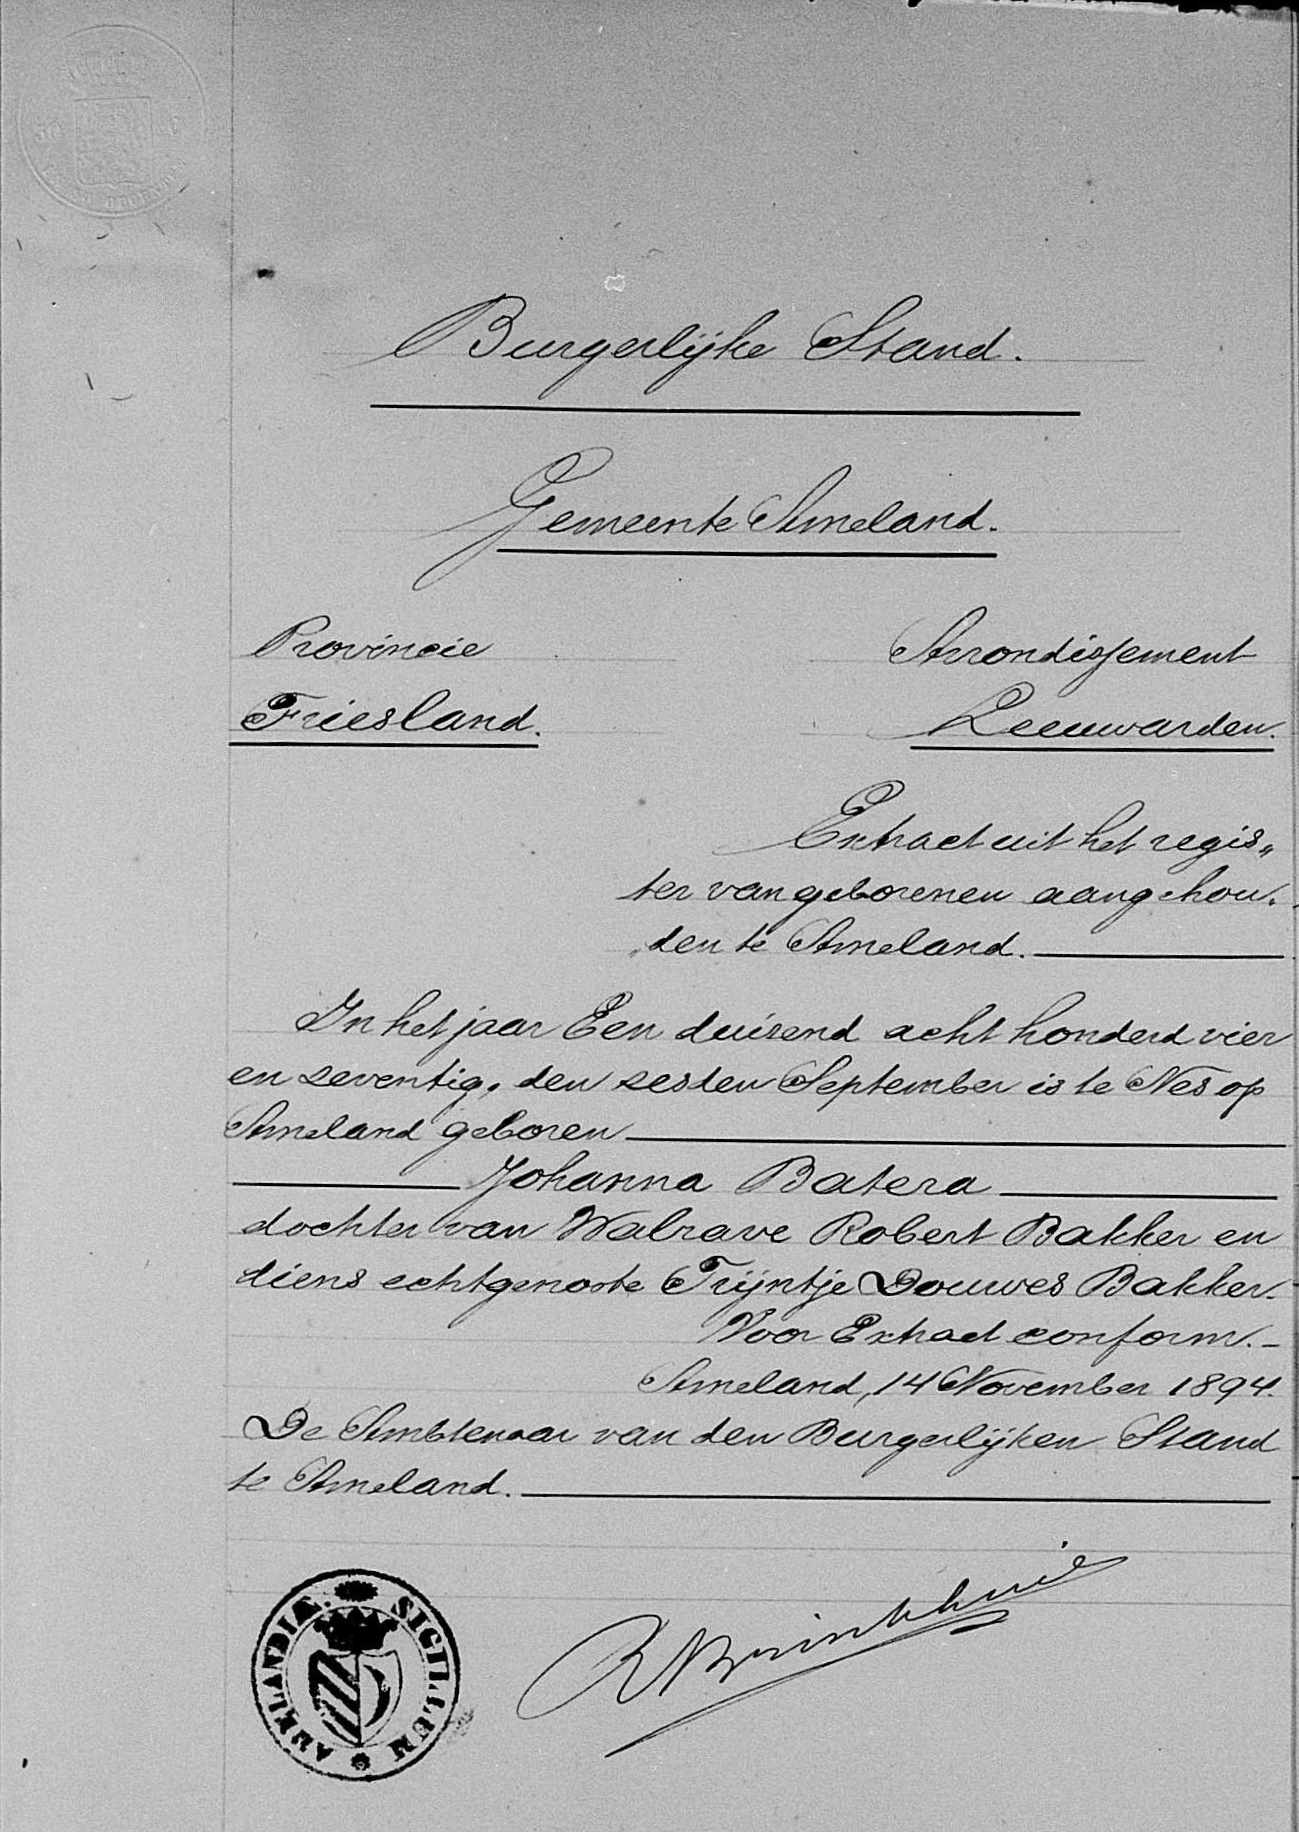 Burgerlijke Stand.
Gemeente Ameland.
Provincie
Friesland.
Arrondissement
Leeuwarden.
Extract uit het regis„
ter van geborenen aangehou„
„den te Ameland.
In het jaar Een duizend acht honderd vier
en zeventig, den zesden September is te Nes op
Ameland geboren
Johanna Batera
dochter van Walrave Robert Bakker en
diens echtgenoote Trijntje Douwes Bakker.
Voor Extract conform.
Ameland, 14 November 1894.
De Ambtenaar van den Burgerlijken Stand
te Ameland.
SIGILLUM AMELANDIÆ